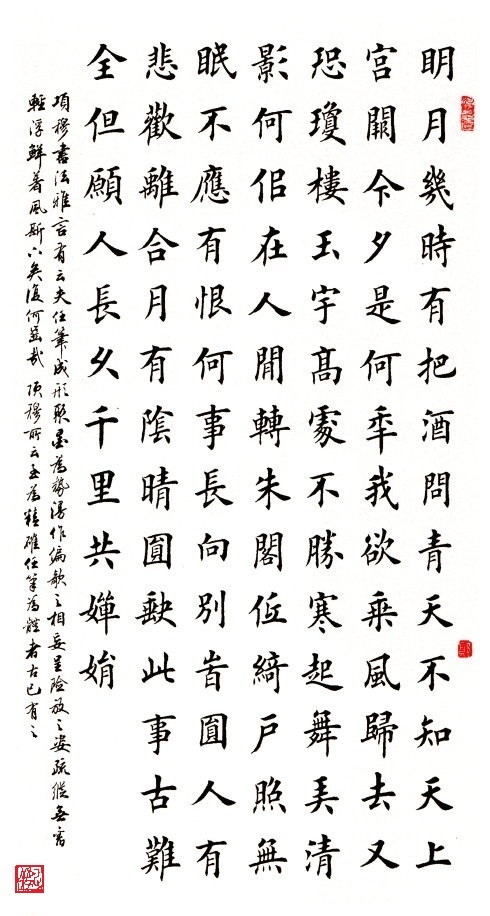 明月幾時有把酒問青天不知天上
宮闕今夕是何秊我欲乘風歸去又
恐瓊樓玉宇高處不勝寒起舞弄清
影何佀在人閒轉朱閣低綺戶照無
眠不應有恨何事長向別旹圓人有
悲歡離合月有陰晴圓缺此事古難
全但願人長久千里共嬋娟
項穆書法雅言有云夫任筆成形聚墨為勢漫作偏欹之相妄呈險放之姿疏縱無
輕浮鮮著風斯下矣復何齒哉項穆所云至為精確任筆為體者古已有之